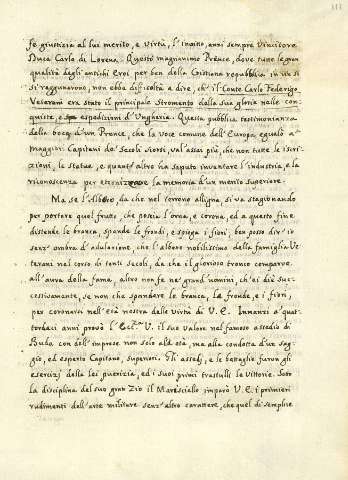 fe giustizia al lui merito, e virtù, l'invitto, anni sempre Vincitore
Duca Carlo di Lorena. Questo magnanimo Prence, dove tutte le gran
qualità degli antichi Eroi per ben della Cristiana repubblica in un sì
si ragunarono, non ebbe difficoltà a dire, ch'il Conte Carlo Federigo
Veterani era stato il principale Stromento della sua gloria nelle con
quiste, e spedizioni d'Ungheria. Questa pubblica testimonianza
della bocca d'un Prence, che la voce comune dell'Europa eguaglia a'
maggiori Capitani de' secoli scorsi, val assai più, che non tutte le iscri
zioni, le statue, e quant'altro ha saputo inventare l'industria, e la
riconoscenza per eternizzare la memoria d'un merito superiore.
Ma se l'Albero, da che nel terreno alligna, si va stagionando
per portare quel frutto, che poscia l'orna, e corona, ed a questo fine
distende le branca, spande le frondi, e spiega i fiori, ben posso dir'io
senz'ombra d'adulazione, che l'albero nobilissimo della famiglia Ve
terani nel corso di tanti secoli, da che il glorioso tronco comparve
all'aura della fama, altro non fe ne' grand'uomini, ch'ei diè suc
cessivamente, se non che spandere le branca, le fronde, e i fiori,
per coronarsi nell'età nostra delle virtù di V. E. Innanzi a' quat
tordeci anni provò l'Ecc. V. il suo valore nel famoso assedio di
Buda con dell'imprese non solo alla età, ma alla condotta d'un sag
gio, ed esperto Capitano, superiori. Gli assedj, e le battaglie furon gli
esercizj della lei puerizia, ed i suoi primi trastulli le Vittorie. Sotto
la disciplina del suo gran Zio il Maresciallo imparò V. E. i primieri
rudimenti dell'arte militare senz'altro carattere, che quel di semplice